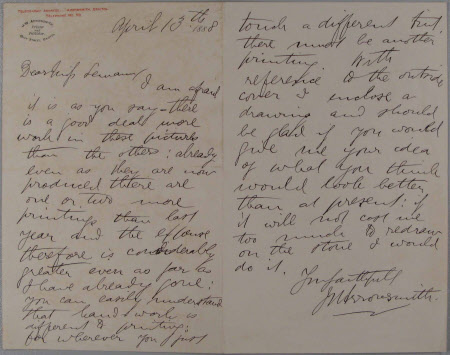 April 13th
1888
Dear Miss
I am afraid
it is as you say there
is a good deal more
work in these pictures
than the others: already
even as they are now
produced there are
one or two more
printings than last
year and the expense
therefore is considerably
greater even as far as
I have already gone:
You can easily understand
that hand work is
different to printing:
for wherever you just
touch a different tint,
there must be another
printing. With
reference to the outside
cover I enclose a
drawing and should
be glad if you would
give me your idea
of what you think
would look better
than at present: if
it will not cost me
too much to redraw
on the stone I would
do it.
Yrs faithfully
JWArrowsmith.